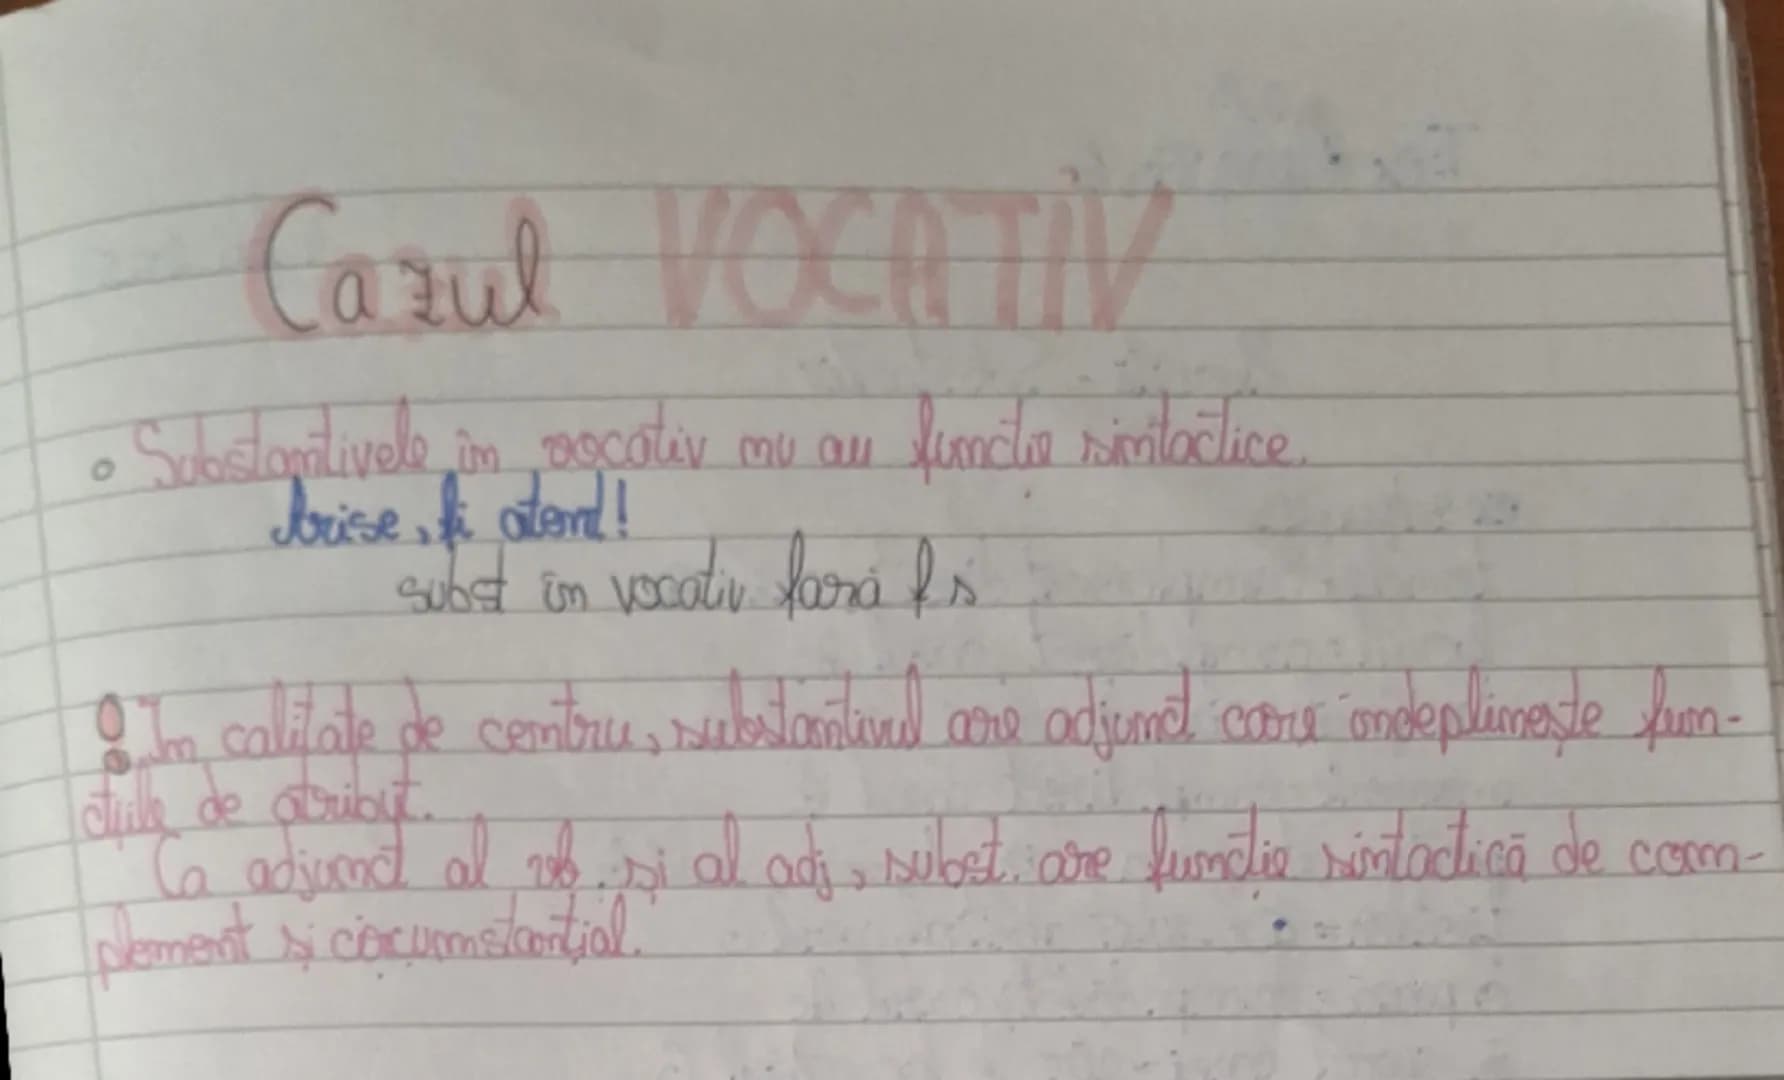 Cazul VOCATIV
Substantivele în vocativ nu au functie sintactice.
fi atent!
subst în vocativ fară f s
În calitate de centru, substantivul are adjunct care îndeplinește fun-
cțiile de atribut.
Ca adjunct al vb. și al adj, subst. are functia sintactică de com-
plement și circumstanțial.